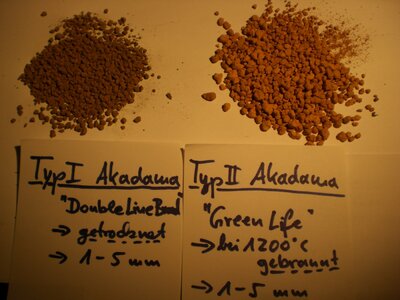 Typ I Akadama
"Double Line Brand"
→ getrocknet
→ 1-5 mm
Typ II Akadama
"Green Life"
→ bei 1200°C
gebrannt
→ 1-5 mm